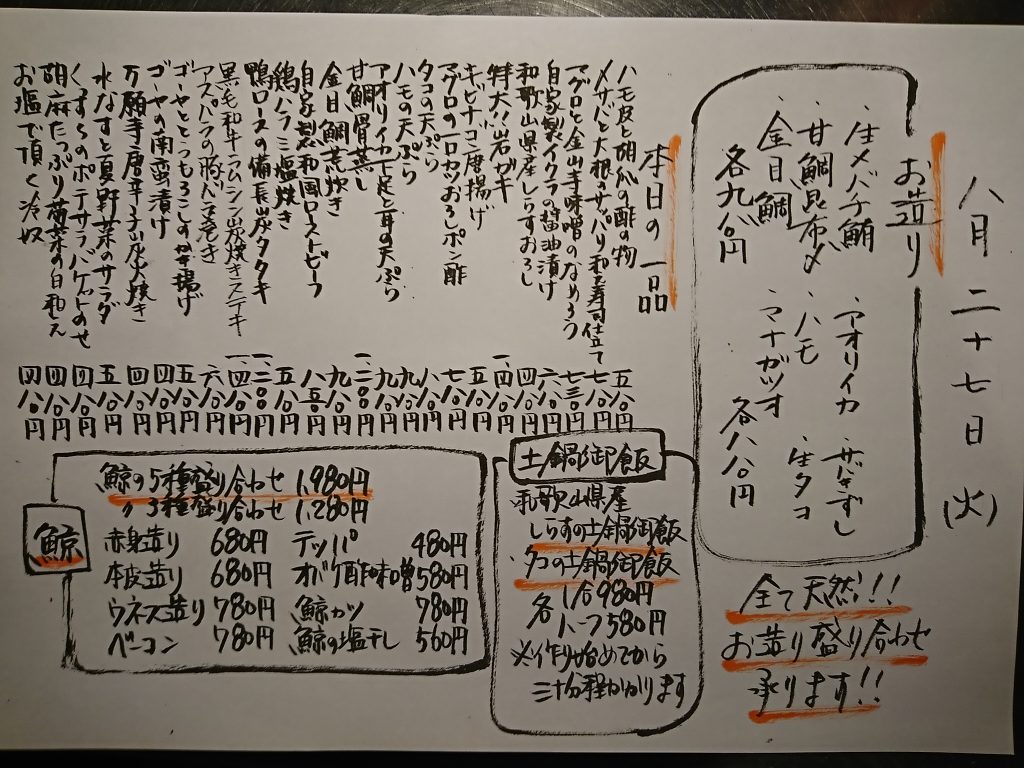 八月二十七日(火)
お造り
・生メバチ鮪
・甘鯛昆布〆
・金目鯛
各九八〇円
・アオリイカ
・ハモ
・マナガツオ
・サバきずし
・生タコ
各八八〇円
全て天然!!
お造り盛り合わせ
承ります!!
本日の一品
ハモ皮と胡瓜の酢の物 五八〇円
〆サバと大根のサッパリ和え寿司仕立て 七八〇円
マグロと金山寺味噌のなめろう 七三〇円
自家製イクラの醤油漬け 六八〇円
和歌山県産しらすおろし 四八〇円
特大!!岩ガキ 一、
キビナゴ唐揚げ 五八〇円
マグロの一口カツおろしポン酢 七八〇円
タコの天ぷら 八八〇円
ハモの天ぷら 九八〇円
アオリイカ下足と耳の天ぷら 九八〇円
甘鯛骨蒸し
金目鯛荒炊き 九八〇円
自家製和風ローストビーフ 八五〇円
鶏ハラミ塩焼き 五八〇円
鴨ロースの備長炭タタキ 一、二〇〇円
黒毛和牛ラムシン炭焼きステキ 一、四八〇円
アスパラの豚バラ巻き 六八〇円
ゴーヤととうもろこしのかき揚げ 五八〇円
ゴーヤの南蛮漬け 四八〇円
万願寺唐辛子炭火焼き 四八〇円
水なすと夏野菜のサラダ 五八〇円
くずきのポテサラバケットのせ 四八〇円
胡麻たっぷり 菜の白和え 四八〇円
お塩で頂く冷奴 四八〇円
土鍋御飯
和歌山県産
しらすの土鍋御飯
タコの土鍋御飯
各 1合980円
ハーフ580円
※作り始めてから
三十分程かかります
鯨
鯨の5種盛り合わせ 1,980円
〃3種盛り合わせ 1,280円
赤身造り 680円
本皮造り 680円
ウネス造り 780円
ベーコン 780円
テッパ 480円
オバケ酢味噌 580円
鯨カツ 780円
鯨の塩干し 560円